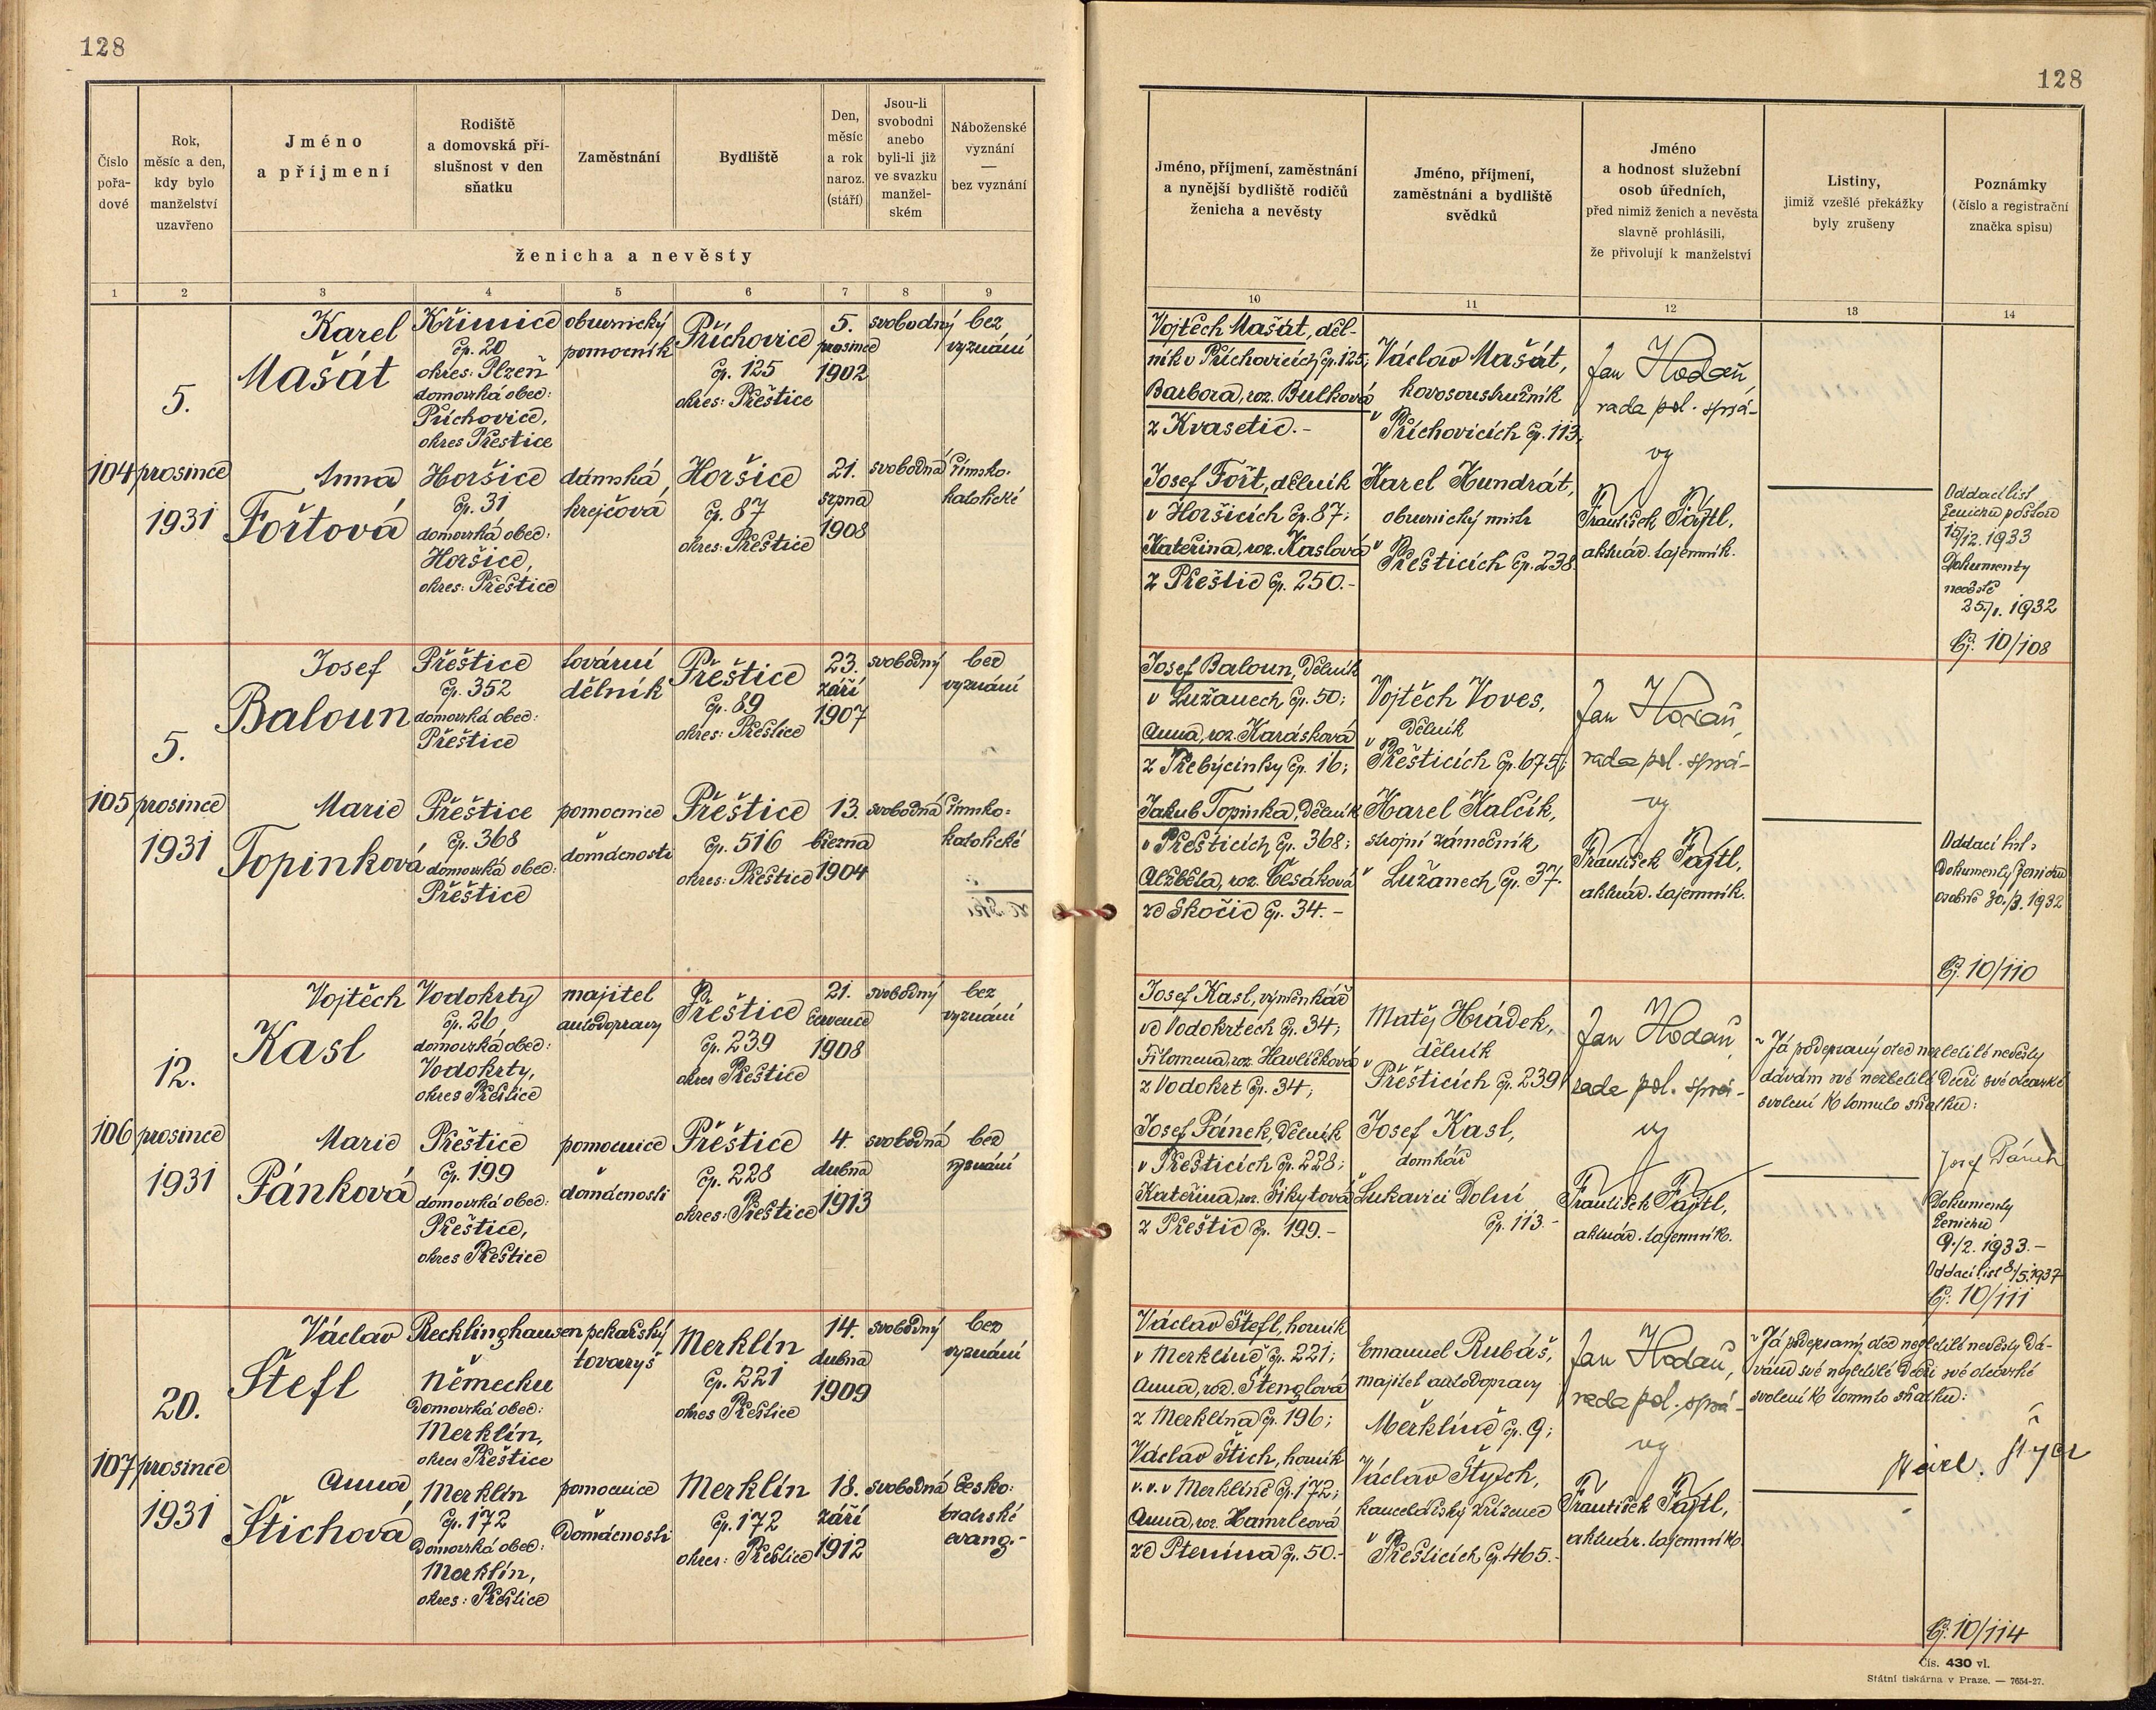 128
128
Číslo pořa- dové
Rok, měsíc a den, kdy bylo manželství uzavřeno
Jméno a příjmení
Rodiště a domovská pří- slušnost v den sňatku
Zaměstnání
Bydliště
Den, měsíc a rok naroz. (stáří)
Jsou-li svobodni anebo byli-li již ve svazku manžel- ském
Náboženské vyznání — bez vyznání
ženicha a nevěsty
1 2 3 4 5 6 7 8 9
Jméno, příjmení, zaměstnání a nynější bydliště rodičů ženicha a nevěsty
Jméno, příjmení, zaměstnání a bydliště svědků
Jméno a hodnost služební osob úředních, před nimiž ženich a nevěsta slavně prohlásili, že přivolují k manželství
Listiny, jimiž vzešlé překážky byly zrušeny
Poznámky (číslo a registrační značka spisu)
10 11 12 13 14
104
5.
prosince
1931
Karel
Mašát
Křimice
čp. 20
okres: Plzeň
domovská obec:
Příchovice,
okres Přeštice
obuvnický
pomocník
Příchovice
čp. 125
okres: Přeštice
5.
prosince
1902
svobodný
bez
vyznání
Anna
Fořtová
Horšice
čp. 31
domovská obec:
Horšice,
okres: Přeštice
dámská
krejčová
Horšice
čp. 87
okres: Přeštice
21.
srpna
1908
svobodná
římsko-
katolické
Vojtěch Mašát, děl-
ník v Příchovicích čp. 125;
Barbora, roz. Bulková
z Kvasetic.-
Josef Fořt, dělník
v Horšicích čp. 87;
Kateřina, roz. Kaslová
z Přeštic čp. 250.-
Václav Mašát,
kovosoustružník
v Příchovicích čp. 113;
Karel Kundrát,
obuvnický mistr
v Přešticích čp. 238.
Jan Hodaň,
rada pol. sprá-
vy
František Fajtl,
aktuár. tajemník.
Oddací list
ženichu poštou
15/12. 1933
Dokumenty
25./1. 1932
Čj. 10/108
105
5.
prosince
1931
Josef
Baloun
Přeštice
čp. 352
domovská obec:
Přeštice
tovární
dělník
Přeštice
čp. 89
okres: Přeštice
23.
září
1907
svobodný
bez
vyznání
Marie
Topinková
Přeštice
čp. 368
domovská obec:
Přeštice
pomocnice
domácnosti
Přeštice
čp. 516
okres: Přeštice
13.
března
1904
svobodná
římsko-
katolické
Josef Baloun, dělník
v Lužanech čp. 50;
Anna, roz. Karásková
z Třebýcinky čp. 16;
Jakub Topinka, dělník
v Přešticích čp. 368;
Alžběta, roz. Cesáková
ze Skočic čp. 34.-
Vojtěch Voves,
dělník
v Přešticích čp. 675;
Karel Kalčík,
strojní zámečník,
v Lužanech čp. 37.
Jan Hodaň,
rada pol. sprá-
vy
František Fajtl,
aktuár. tajemník.
Oddací list,
dokumenty ženichu
osobně 30./3. 1932
Čj. 10/110
106
12.
prosince
1931
Vojtěch
Kasl
Vodokrty
čp. 26
domovská obec:
Vodokrty,
okres Přeštice
majitel
autodopravy
Přeštice
čp. 239
okres Přeštice
21.
července
1908
svobodný
bez
vyznání
Marie
Pánková
Přeštice
čp. 199
domovská obec:
Přeštice,
okres Přeštice
pomocnice
domácnosti
Přeštice
čp. 228
okres: Přeštice
4.
dubna
1913
svobodná
bez
vyznání
Josef Kasl, výměnkář
ve Vodokrtech čp. 34;
Filomena, roz. Havlíčková
z Vodokrt čp. 34;
Josef Pánek, dělník
v Přešticích čp. 228;
Kateřina, roz. Sikytová
z Přeštic čp. 199.-
Matěj Hrádek,
dělník
v Přešticích čp. 239;
Josef Kasl,
domkář
v Lukavici Dolní
čp. 113.-
Jan Hodaň,
rada pol. sprá-
vy
František Fajtl,
aktuár. tajemník.
Já podepsaný otec nezletilé nevěsty
dávám své nezletilé dceři své otcovské
svolení k tomuto sňatku:
Josef Pánek
Dokumenty
ženichu
9./2. 1933.-
Oddací list 8/5.1937
Čj. 10/111
107
20.
prosince
1931
Václav
Štefl
Recklinghausen
v
Německu
domovská obec:
Merklín,
okres Přeštice
pekařský
tovaryš
Merklín
čp. 221
okres Přeštice
14.
dubna
1909
svobodný
bez
vyznání
Anna
Štichová
Merklín
čp. 172
domovská obec:
Merklín,
okres: Přeštice
pomocnice
domácnosti
Merklín
čp. 172
okres: Přeštice
18.
září
1912
svobodná
česko-
bratrské
evang.-
Václav Štefl, horník
v Merklíně čp. 221;
Anna, roz. Štenglová
z Merklína čp. 196;
Václav Štich, horník
v. v. v Merklíně čp. 172;
Anna, roz. Hamrlová
ze Ptenína čp. 50.-
Emanuel Rubáš,
majitel autodopravy
Merklíně čp. 9;
Václav Štych,
kancelářský zřízenec
v Přešticích čp. 465.-
Jan Hodaň,
rada pol. sprá-
vy
František Fajtl,
aktuár. tajemník.
Já podepsaný otec nezletilé nevěsty dá-
vám své nezletilé dceři své otcovské
svolení k tomuto sňatku:
Čj. 10/114
Čís. 430 vl.
Státní tiskárna v Praze. — 7654-27.